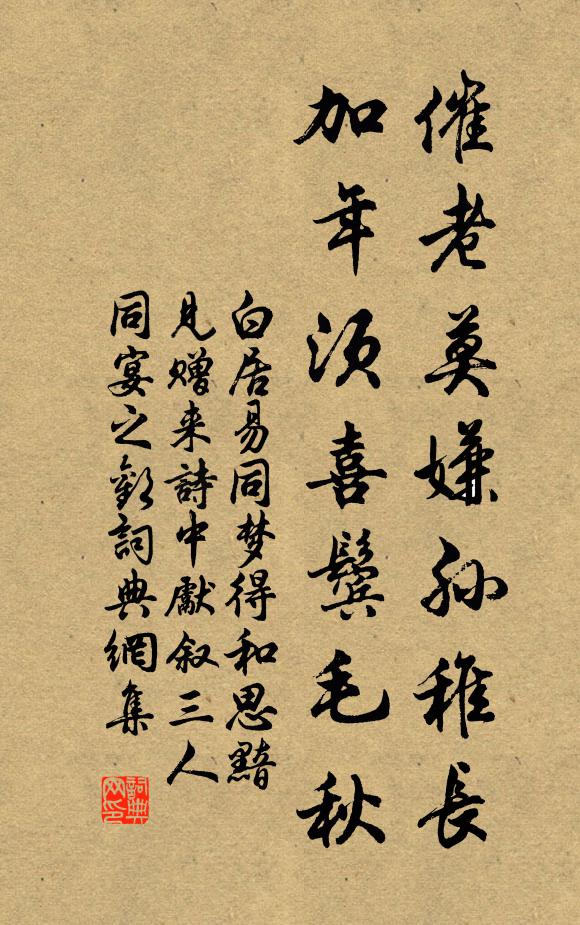 催老莫嫌孙稚長
加年須喜鬢毛秋
白居易同梦得和思黯
見赠来詩中獻叙三人
同宴之歡詞典網集
詞典网印